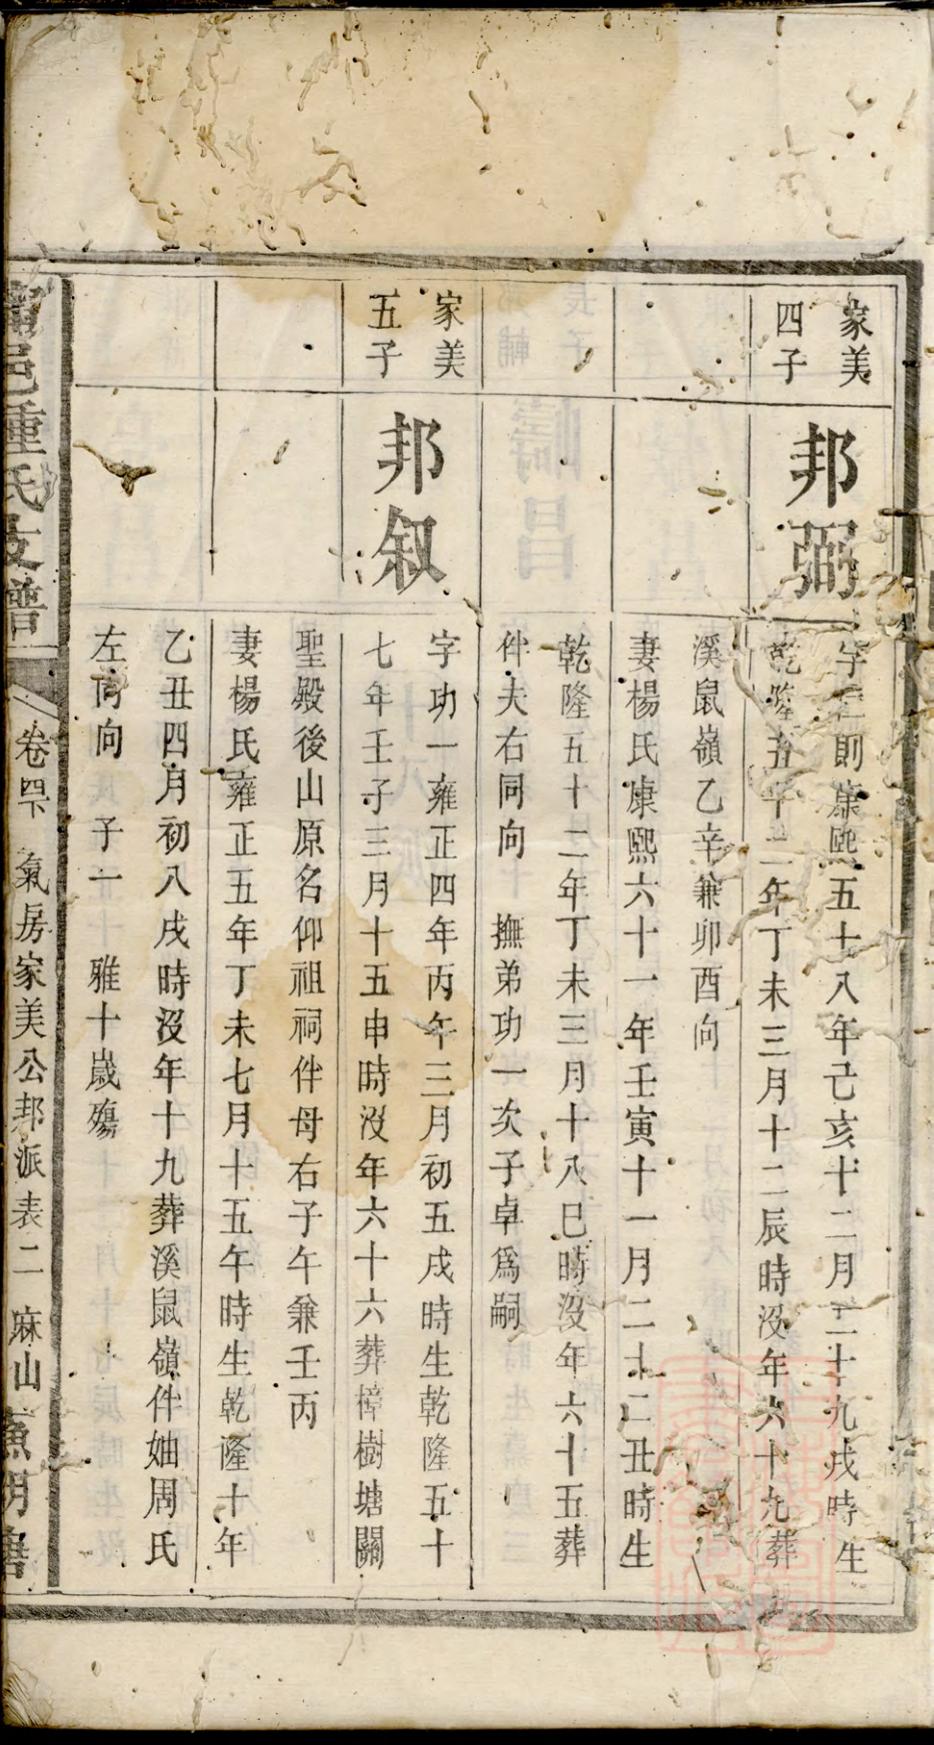 家美
四子
邦弼
字 則康熙五十八年己亥十二月二十九戌時生
乾隆五十二年丁未三月十二辰時沒年六十九葬
溪鼠嶺乙辛兼卯酉向
妻楊氏康熙六十一年壬寅十一月二十二丑時生
乾隆五十二年丁未三月十八巳時沒年六十五葬
伴夫右同向 撫弟功一次子卓爲嗣
家美
五子
邦叙
字功一雍正四年丙午三月初五戌時生乾隆五十
七年壬子三月十五申時沒年六十六葬樟樹塘關
聖殿後山原名仰祖祠伴母右子午兼壬丙
妻楊氏雍正五年丁未七月十五午時生乾隆十年
乙丑四月初八戌時沒年十九葬溪鼠嶺伴妯周氏
左同向 子一 雅十歲殤
邑鍾氏支譜
卷四下 氣房家美公邦派表二 麻山